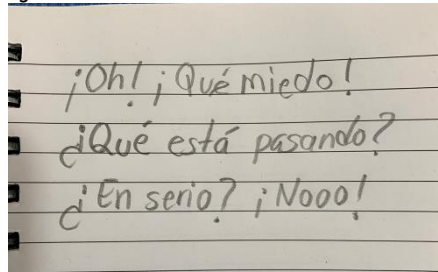 ¡Oh! ¡Qué miedo!
¿Qué está pasando?
¿En serio? ¡Nooo!